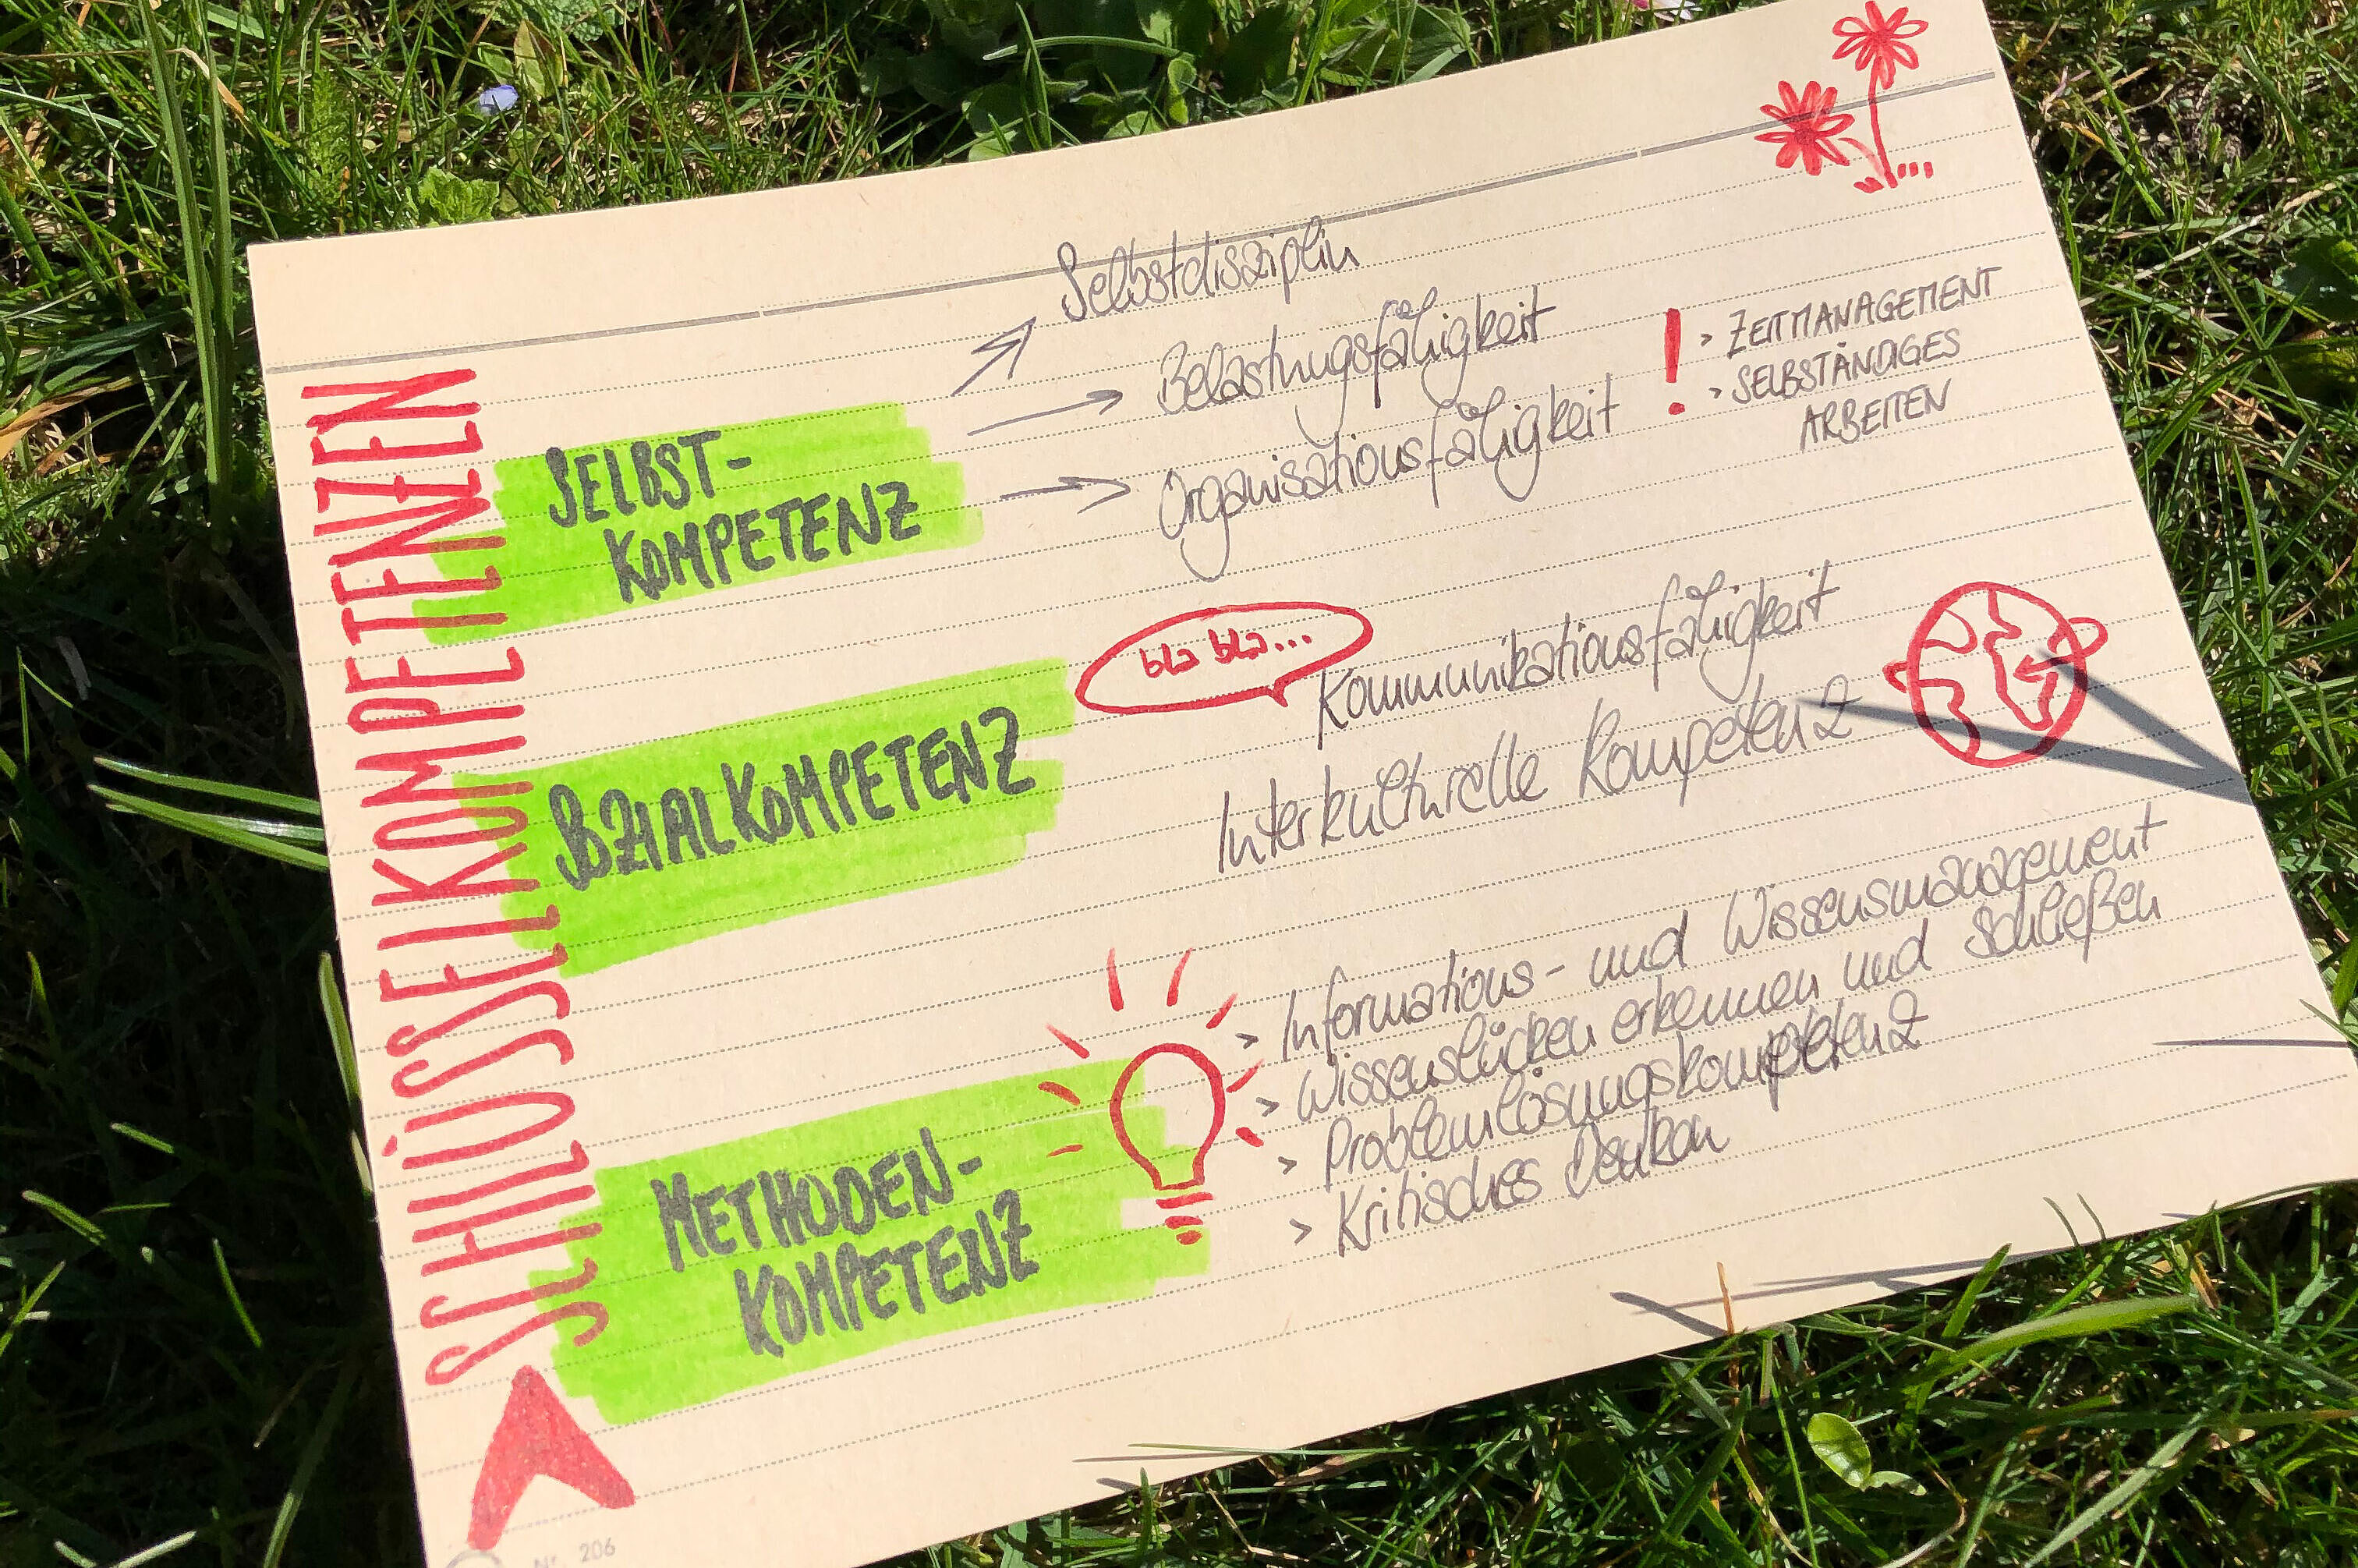 SCHLÜSSELKOMPETENZEN
SELBST-
KOMPETENZ
Selbstdisziplin
Belastungsfähigkeit
Organisationsfähigkeit
! > ZEITMANAGEMENT
> SELBSTÄNDIGES
ARBEITEN
SOZIALKOMPETENZ
bla bla...
Kommunikationsfähigkeit
Interkulturelle Kompetenz
METHODEN-
KOMPETENZ
> Informations- und Wissensmanagement
> Wissenslücken erkennen und schließen
> Problemlösungskompetenz
> Kritisches Denken
Nr. 206